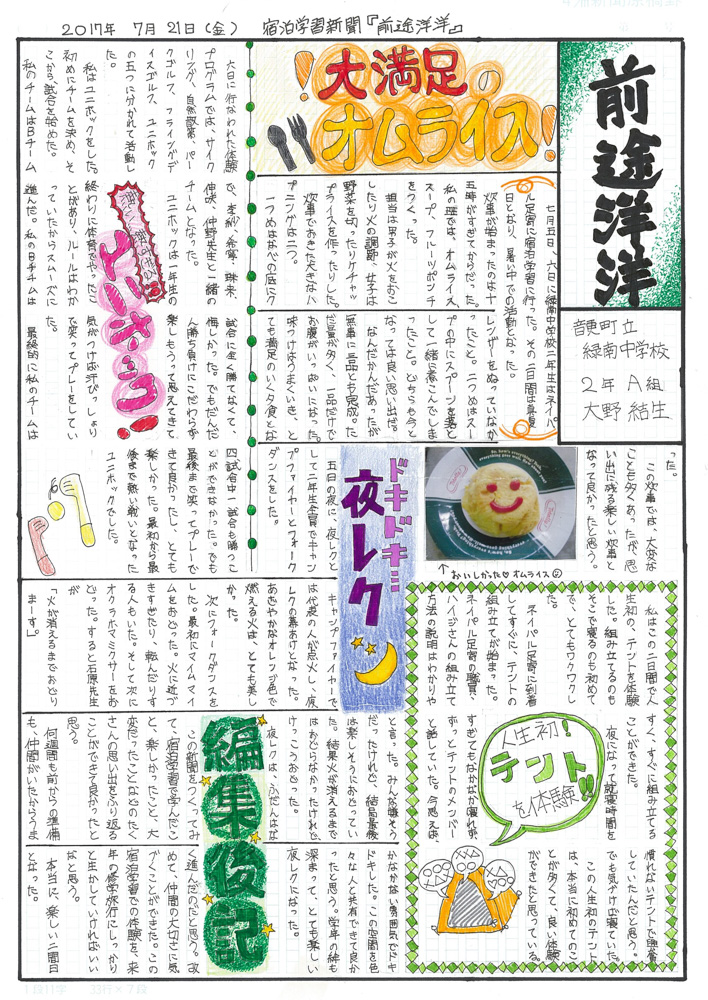 2017年 7月 21日(金) 宿泊学習新聞『前途洋洋』
前途洋洋
音更町立
緑南中学校
2年 A組
大野 結生
大満足の
オムライス!
七月五日、六日に緑南中学校二年生はネイパ
ル足寄に宿泊学習に行った。その二日間は真夏
日となり、暑い中での活動となった。
炊事が始まったのは十
五時がすぎてからだった。
私の班では、オムライス、
スープ、フルーツポンチ
をつくった。
担当は男子が火をおこ
したり火の調節、女子は
野菜を切ったりケチャッ
プライスを作ったりした。
炊事でおきた大きなハ
プニングは二つ。
一つめはなべの底にク
レンザーをぬっていなか
ったこと。二つめはスー
プの中にスプーンを落と
して一緒に煮こんでしま
ったこと。どちらも今と
なっては良い思い出だ。
なんだかんだあったが
無事に三品とも完成。た
だ量が多く、一品だけで
お腹がいっぱいになった。
味つけはうまくいき、と
ても満足のいく夕食とな
った。
この炊事では、大変な
ことも多くあったが、思
い出に残る楽しい炊事と
なって良かったと思う。
↑おいしかった♡オムライス
六日に行なわれた体験
プログラムでは、サイク
リング、自然散策、パー
クゴルフ、フライングデ
ィスクゴルフ、ユニホック
の五つに分かれて活動し
た。
私はユニホックをした。
初めにチームを決め、そ
こから試合を始めた。
私のチームはBチーム
ユニホック!
で、
伸咲、仲野先生と一緒の
チームとなった。
ユニホックは一年生の
終わりに体育でやったこ
とがあり、ルールはわか
っていたからスムーズに
進んだ。私のBチームは
試合に全く勝てなくて、
悔しかった。でもだんだ
ん勝ち負けにこだわらず
楽しもうって思えてきて
気がつけば汗びっしょり
で笑ってプレーをしてい
た。
最終的に私のチームは
四試合中一試合も勝つこ
とができなかった。でも
最後まで笑ってプレーで
きて良かったし、とても
楽しかった。最初から最
後まで熱い戦いとなった
ユニホックでした。
ドキドキ
夜レク
五日の夜に、夜レクと
して二年生全員でキャン
プファイヤーとフォーク
ダンスをした。
キャンプファイヤーで
は代表の人が点火し、夜
レクの幕あけとなった。
あざやかなオレンジ色で
燃える火は、とても美し
かった。
次にフォークダンスを
した。最初にマイムマイ
ムをおどった。火に近づ
きすぎたり、転んだりす
る人もいた。そして次に
オクラホマミクサーをお
どった。すると石原先生
が
「火が消えるまでおどり
まーす」
と言った。みんな嫌そう
だったけれど、結局最後
は楽しそうにおどってい
た。結果火が消えるまで
はおどらなかったけれど、
けっこうおどった。
夜レクは、ふだんはな
かなかない雰囲気でドキ
ドキした。この空間を色
々な人と共有できて良か
ったと思う。学年の絆も
深まって、とても楽しい
夜レクになった。
人生初!
テント!!
を体験
私はこの二日間で人
生初の、テントを体験
した。組み立てるのも
そこで寝るのも初めて
で、とてもワクワクし
た。
ネイパル足寄に到着
してすぐに、テントの
組み立てが始まった。
ネイパル足寄の職員、
ハイジさんの組み立て
方法の説明はわかりや
すく、すぐに組み立てる
ことができた。
夜になって就寝時間を
すぎてもなかなか寝れず、
ずっとテントのメンバー
と話していた。今思えば、
慣れないテントで興奮
していたんだと思う。
でも気づけば寝ていた。
この人生初のテント
は、本当に初めてのこ
とが多くて、良い体験
ができたと思っている。
編集後記
この新聞をつくってみ
て、宿泊学習で学んだこ
と、楽しかったこと、大
変だったことなどのたく
さんの思い出をふり返る
ことができて良かったと
思う。
何週間も前からの準備
も、仲間がいたからうま
く進んだのだと思う。改
めて、仲間の大切さに気
づくことができた。この
宿泊学習での体験を、来
年の修学旅行にしっかり
と生かしていければいい
なと思う。
本当に、楽しい二日間
となった。